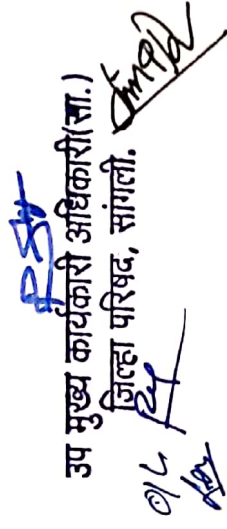 उप मुख्य कार्यकारी अधिकारी(सा.)
जिल्हा परिषद, सांगली.